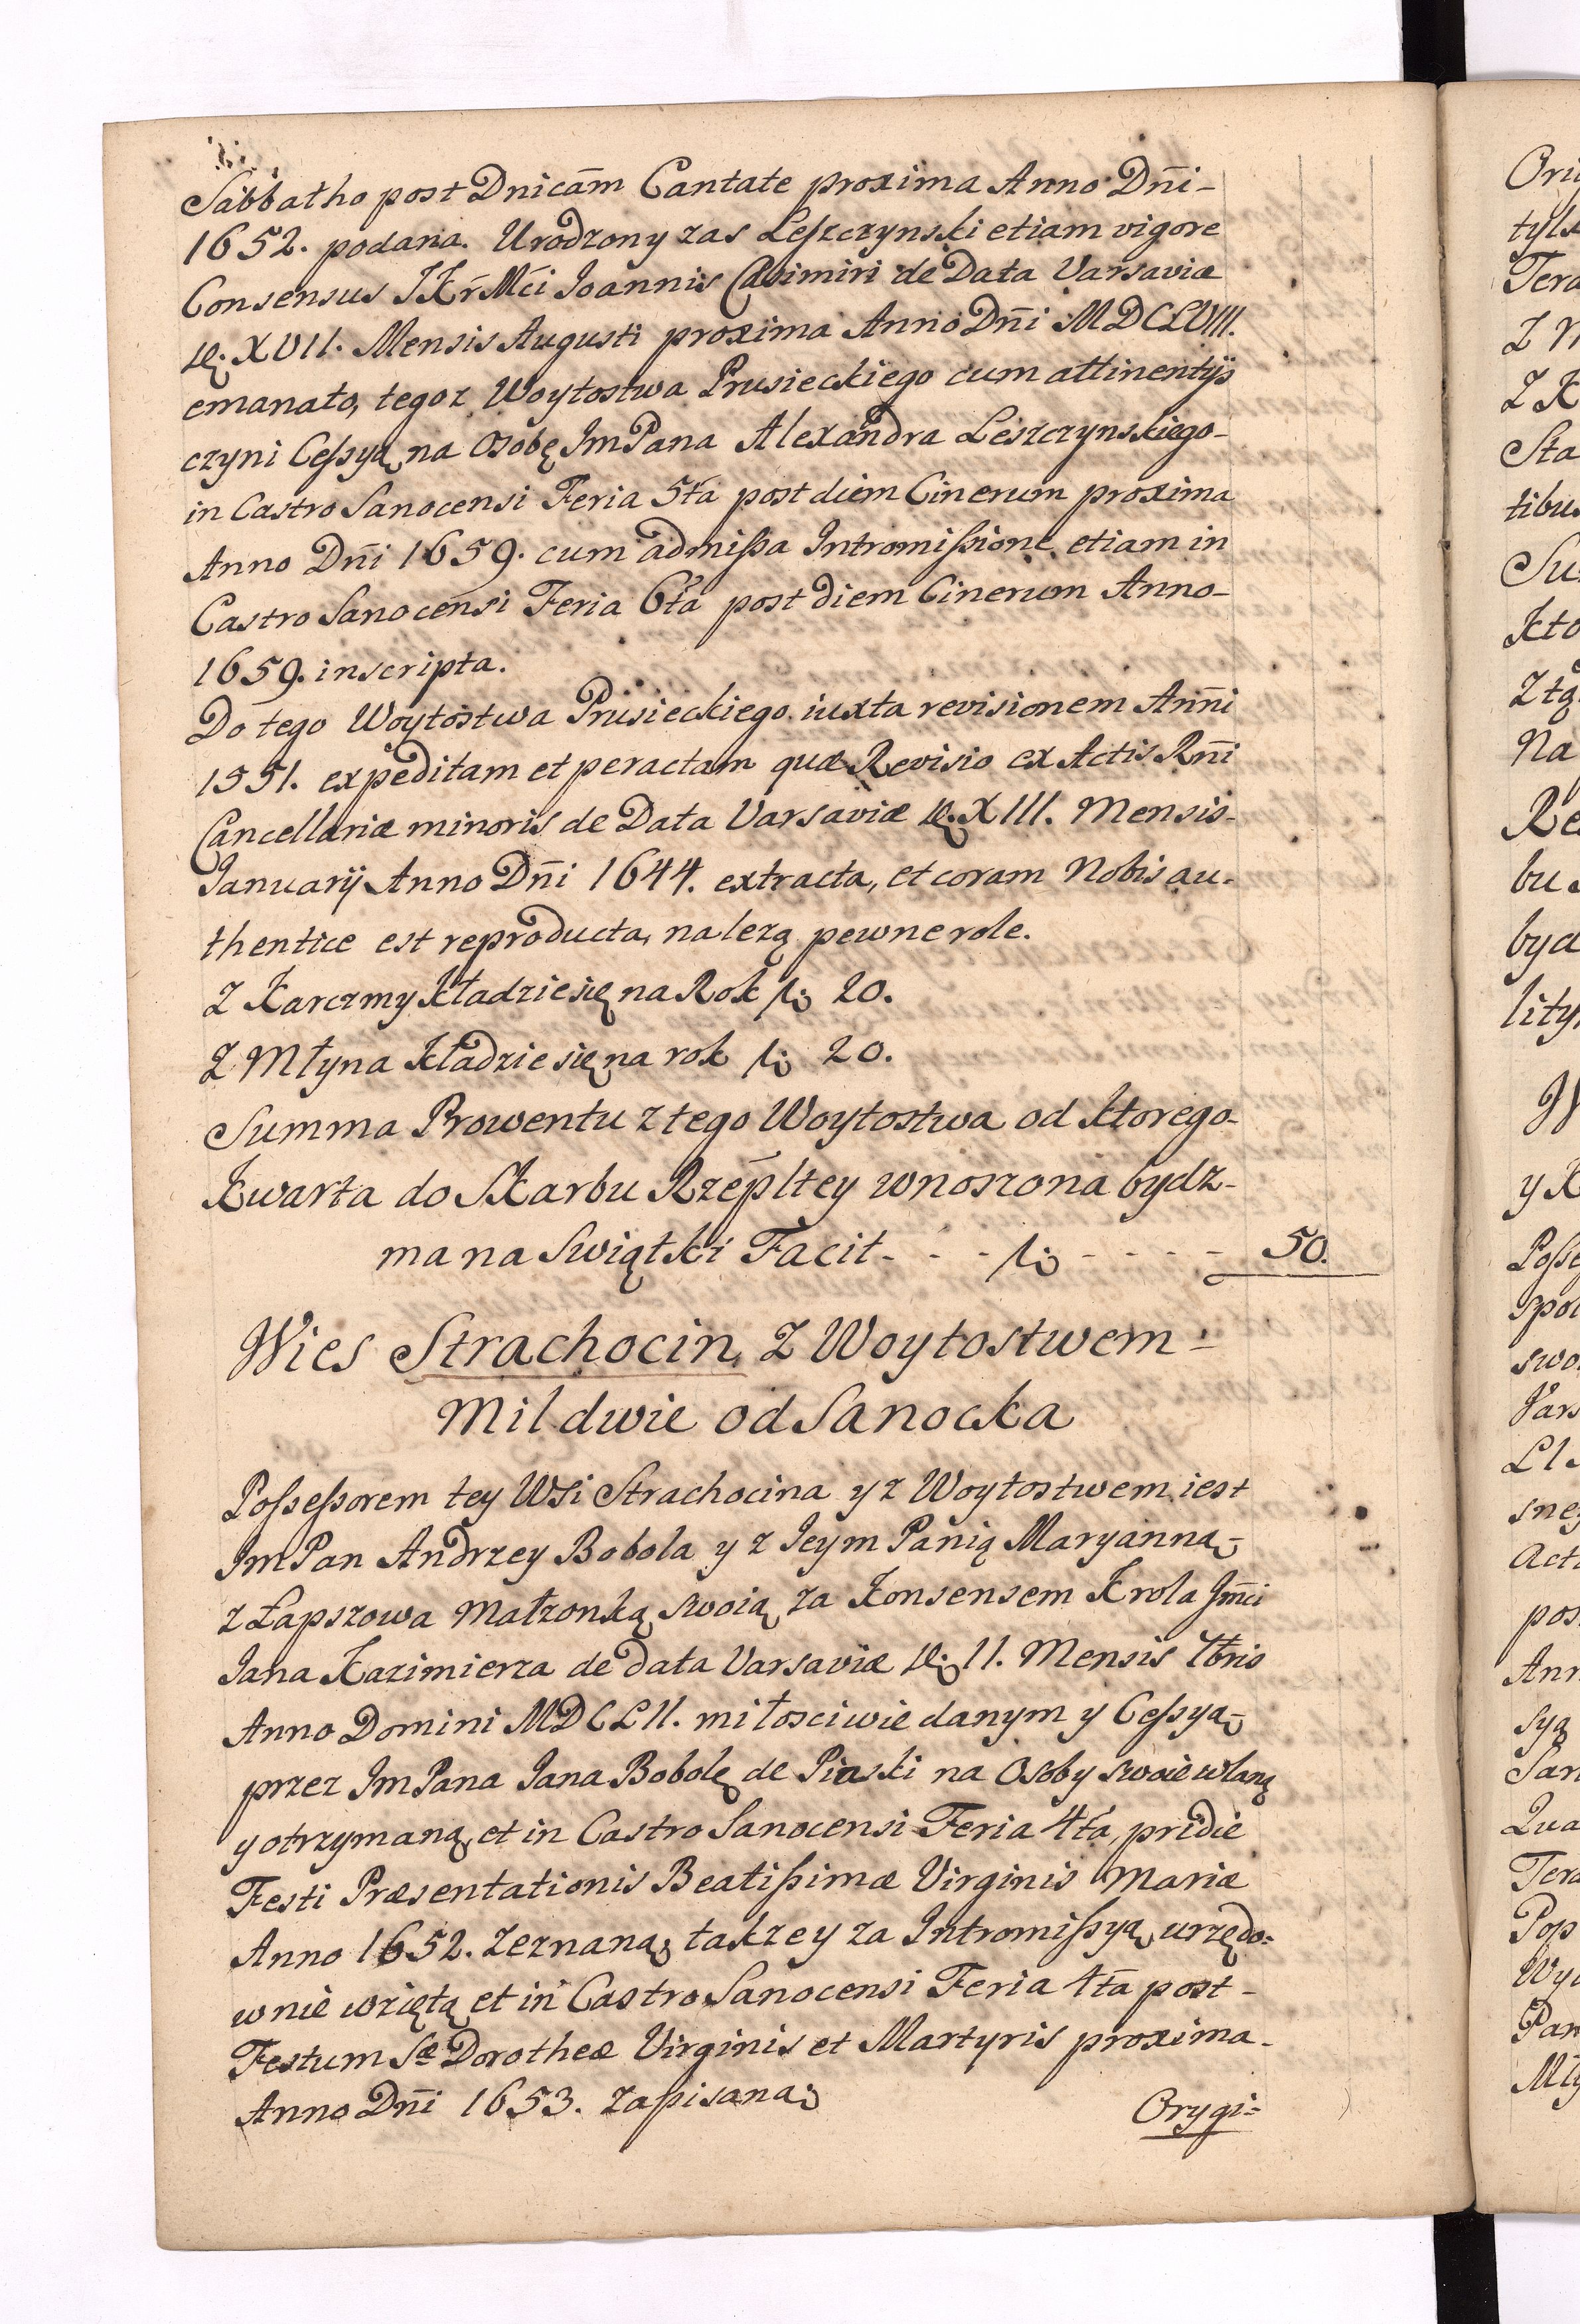 Sabbatho post Dnicam̃ Cantate proxima Anno Dñi-
1652. podana. Urodzony zas Leszczynski etiam vigore
Consensus JKrMći Joannis Casimiri de Data Varsaviæ
XVII. Mensis Augusti proxima Anno Dñi MDCLVIII.
emanato, tegoz Woytostwa Prusieckiego cum attinentijs
czyni Cessyą na Osobę ImPana Alexandra Leszczynskiego-
in Castro Sanocensi Feria 5ta post diem Cinerum proxima
Anno Dñi 1659. cum admissa Intromissione etiam in
Castro Sanocensi Feria 6ta post diem Cinerum Anno-
1659. inscripta.
Do tego Woytostwa Prusieckiego iuxta revisionem Anñi
1551. expeditam et peractam quæ Revisio ex Actis Rñi
Cancellariæ minoris de Data Varsaviæ XIII. Mensis-
Januarij Anno Dñi 1644. extracta, et coram Nobis au-
thentice est reproducta, nalezą pewne role.
Z Karczmy Kładzie się na Rok f: 20.
Z Młyna Kładzie się na rok f: 20.
Summa Prowentu z tego Woytostwa od Ktorego-
Kwarta do Skarbu Rzépltey wnoszona bydz-
ma na Swiątki Facit - - - f: - - - - - 50.
Wies Strachocin Z Woytostwem-
Mil dwie od Sanocka
Possessorem tey Wsi Strachocina y z Woytostwem iest
ImPan Andrzey Bobola y z Jeym Panią Maryanną-
z Łapszowa Małzonką swoią za Konsensem Krola Jm̃ci
Jana Kazimierza de data Varsaviæ 11. Mensis 7bris
Anno Domini MDCLII. miłosciwie danym y Cessyą-
przez ImPana Jana Bobolę de Piaski na Osoby swoie wlaną
y otrzymaną et in Castro Sanocensi Feria 4ta pridie
Festi Præsentationis Beatissimæ Virginis Mariæ
Anno 1652. Zeznaną, takze y za Intromissyą urzędo=
wnie wziętą et in Castro Sanocensi Feria 4ta post-
Festum Sæ Dorotheæ Virginis et Martyris proxima-
Anno Dñi 1653. zapisaną
Orygi=